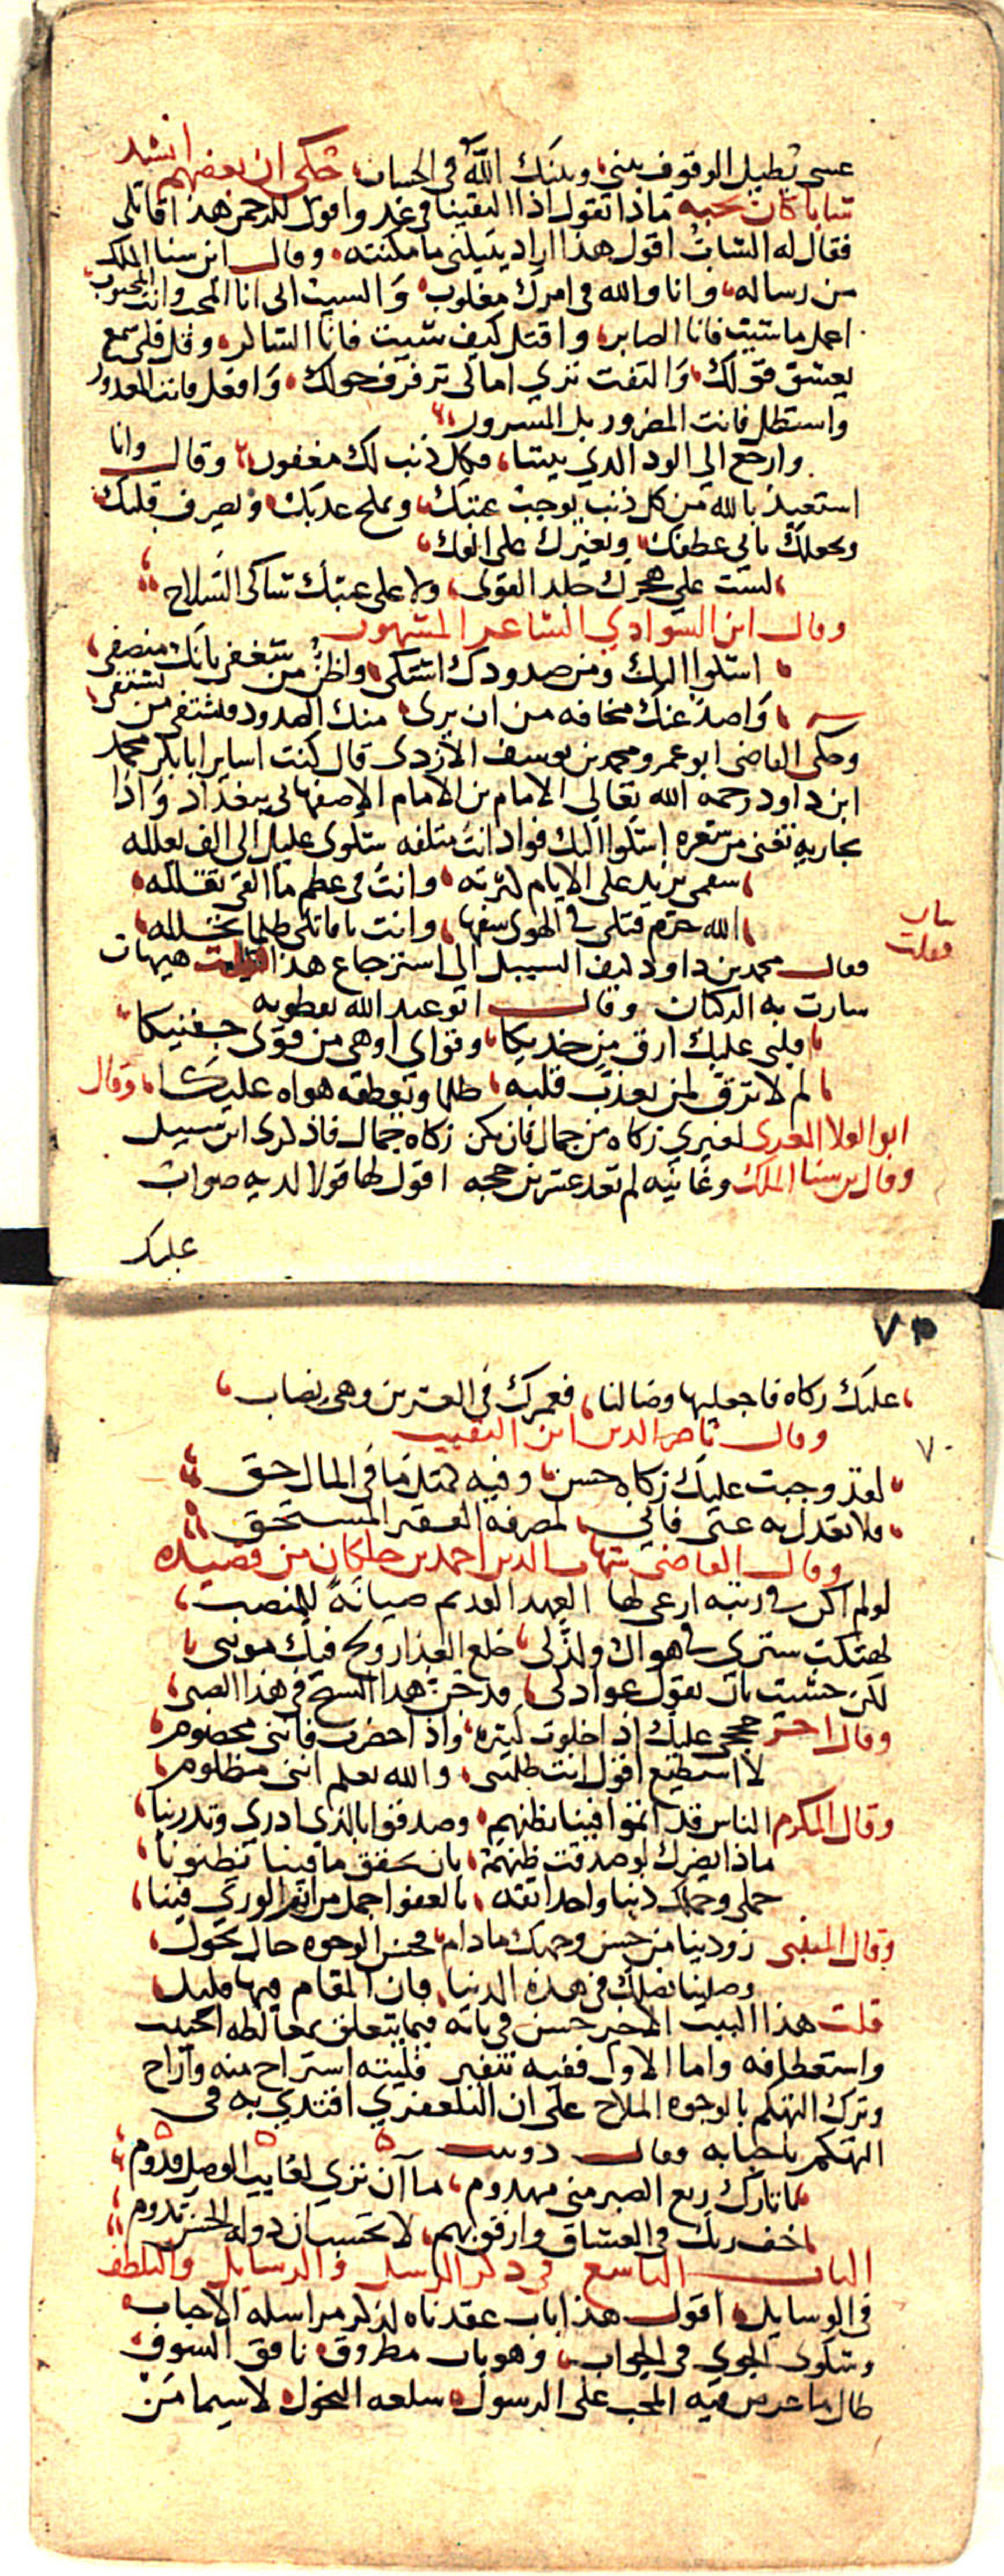 عسى تطيل الوقوف بيني وبينك الله في الحساب حكي ان بعضهم انشد
شابا كان يحبه ماذا تقول اذا التقينا في غد واقول للرحمن هذا قاتلي
فقال له الشاب اقول هذا اراد ينيلني ما مكنته وقال ابن سنا الملك
من رساله وانا والله في امرك مغلوب والسبب اني انا المحب وانت المحبوب
اعمل ما شيت فانا الصابر واقتل كيف شيت فانا الشاكر وقل فلي سمع
يعشق قولك والتفت تري امالي ترفرف حولك وافعل فانت المعدور
واستطل فانت المضرور بل المسرور
وارجع الي الود الدي بيننا فكل ذنب لك مغفور وقال وانا
استعيذ بالله من كل ذنب يوجب عتبك ويملح عذبك ويصرف قلبك
ويجعلك ثاني عطفك ويغيرك على الفك
لست علي هجرك جلد القوى ولا على عتبك شاكى السلاح
وقال ابن السوادي الشاعر المشهور
اشكوا اليك ومن صدودك اشتكى واظن من شغفي بانك منصفي
واصد عنك مخافه من ان يرى منك الصدود فيشتفي من يشتفي
وحكى القاضي ابو عمرو محمد بن يوسف الازدى قال كنت اساير ابا بكر محمد
ابن داود رحمه الله تعالي الامام بن الامام الاصفهاني ببغداد واذا
بجاريه تغني من شعره اشكوا اليك فوادا انت متلفه شكوى عليل الى الف يعلله
سقمي يزيد على الايام كثرته وانت في عظم ما القى تقلله
الله حرم قتلي في الهوى سفها وانت يا قاتلي ظلما تحلله
فقال محمد بن داود كيف السبيل الى استرجاع هذا فقلت هيهات
سارت به الركبان وقال ابو عبد الله نفطويه
قلبي عليك ارق من خديكا وقواي اوهى من قوى جفنيكا
لم لا ترق لمن يعذب قلبه ظلما ويعطفه هواه عليكا وقال
ابو العلا المعرى لغيري زكاه من جمال فان يكن زكاه جمال فاذكرى ابن سبيل
وقال بن سنا الملك وغانيه لم تعد عشرين حجه اقول لها قولا لديه صواب
عليك
٧٣
عليك زكاه فاجعليها وصالنا فعمرك في العشرين وهي نصاب
وقال ناصر الدين ابن النقيب
لقد وجبت عليك زكاه حسن وفيه كمثل ما في المال حق
فلا تعدل به عني فاني لمصرفه الفقير المستحق
وقال القاضي شهاب الدين احمد بن خلكان من قصيده
لو لم اكن في رتبه ارعى لها العهد القديم صيانة للمنصب
لهتكت ستري في هواك ولذ لي خلع العذار ولج فيك مونبي
لكن خشيت بان يقول عوادلي قد جن هدا الشيخ في هذا الصبى
وقال اخر حججي عليك اذا خلوت كثيره واذا حضرت فانني مخصوم
لا استطيع اقول انت ظلمتني والله يعلم انني مظلوم
وقال المكرم الناس قد اثموا فينا بظنهم وصدقوا بالذي ادري وتدرينا
ماذا يضرك لو صدقت ظنهم بان يحقق ما فينا تظنونا
حملي وحملك ذنبا واحدا ثقه بالعفو اجمل من اثم الوري فينا
وقال المتنبي زودينا من حسن وجهك ما دام فحسن الوجوه حال يحول
وصلينا نصلك في هذه الدنيا فان المقام فيها قليل
قلت هذا البيت الاخير حسن في بابه فيما يتعلق بمغالطه الحبيب
واستعطافه واما الاول ففيه تنفير فليته استراح منه واراح
وترك التهكم بالوجوه الملاح على ان التلعفري اقتدي به في
التهكم باحبابه فقال دوبيت
يا تارك ربع الصبر مني مهدوم ما آن تري لغايب الوصل قدوم
خف ربك في العشاق وارفق بهم لا تحسب ان دولة الحسن تدوم
الباب التاسع في ذكر الرسل والرسايل والتلطف
في الوسايل اقول هذا باب عقدناه لذكر مراسله الاحباب
وشكوى الجوي في الجواب وهو باب مطروق نافق السوق
طال ما عرض فيه المحب على الرسول سلعه النحول لا سيما من
٧٠